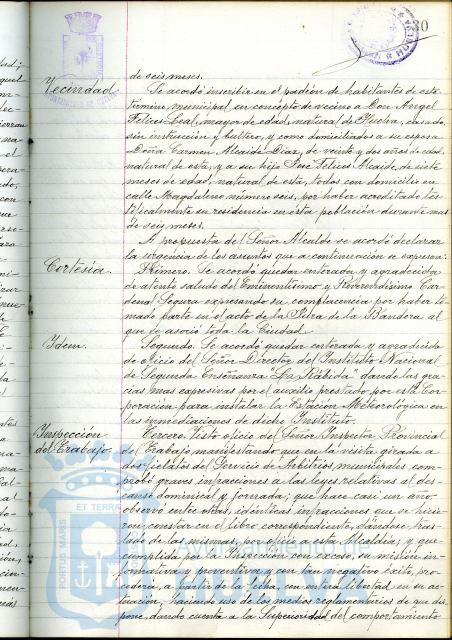 30
de seis meses.
Vecindad. Se acordó inscribir en el padrón de habitantes de este
término municipal en concepto de vecino a Don Angel
Felices Leal, mayor de edad, natural de Huelva, casado,
sin instrucción y bultero, y como domiciliados a su esposa
Doña Carmen Alcaide Diaz, de veinte y dos años de edad,
natural de esta, y a su hijo José Felices Alcaide, de siete
meses de edad, natural de esta, todos con domicilio en
calle Magdalena número seis, por haber acreditado tes-
tificalmente su residencia en ésta población durante mas
de seis meses.
A propuesta del Señor Alcalde se acordó declarar
la urgencia de los asuntos que a continuación se expresan:
Cortesía. Primero. Se acordó quedar enterada y agradecida
de atento saludo del Eminentísimo y Reverendísimo Car-
denal Segura expresando su complacencia por haber to-
mado parte en el acto de la Jura de la Bandera al
que se asoció toda la Ciudad.
Idem. Segundo. Se acordó quedar enterada y agradecida
de oficio del Señor Director del Instituto Nacional
de Segunda Enseñanza "La Rábida" dando las gra-
cias mas expresivas por el auxilio prestado por esta Cor-
poración para instalar la Estación Meteorológica en
las inmediaciones de dicho Instituto.
Inspección del Trabajo. Tercero. Visto oficio del Señor Inspector Provincial
del Trabajo manifestando que en la visita girada a
dos fielatos del Servicio de Arbitrios municipales com-
probó graves infracciones a las leyes relativas al des-
canso dominical y jornada; que hace casi un año
observó entre otras, idénticas infracciones que se hicie-
ron constar en el libro correspondiente, dándose tras-
lado de las mismas, por oficio a esta Alcaldía; y que
cumplida por la Inspección con exceso, su misión in-
formativa y preventiva y con tan negativo éxito, pro-
cederá, a partir de la fecha, con entera libertad en su ac-
tuación, haciendo uso de los medios reglamentarios de que dis-
pone, dando cuenta a la Superioridad del comportamiento
PORTUS MARIS ET TERRAE